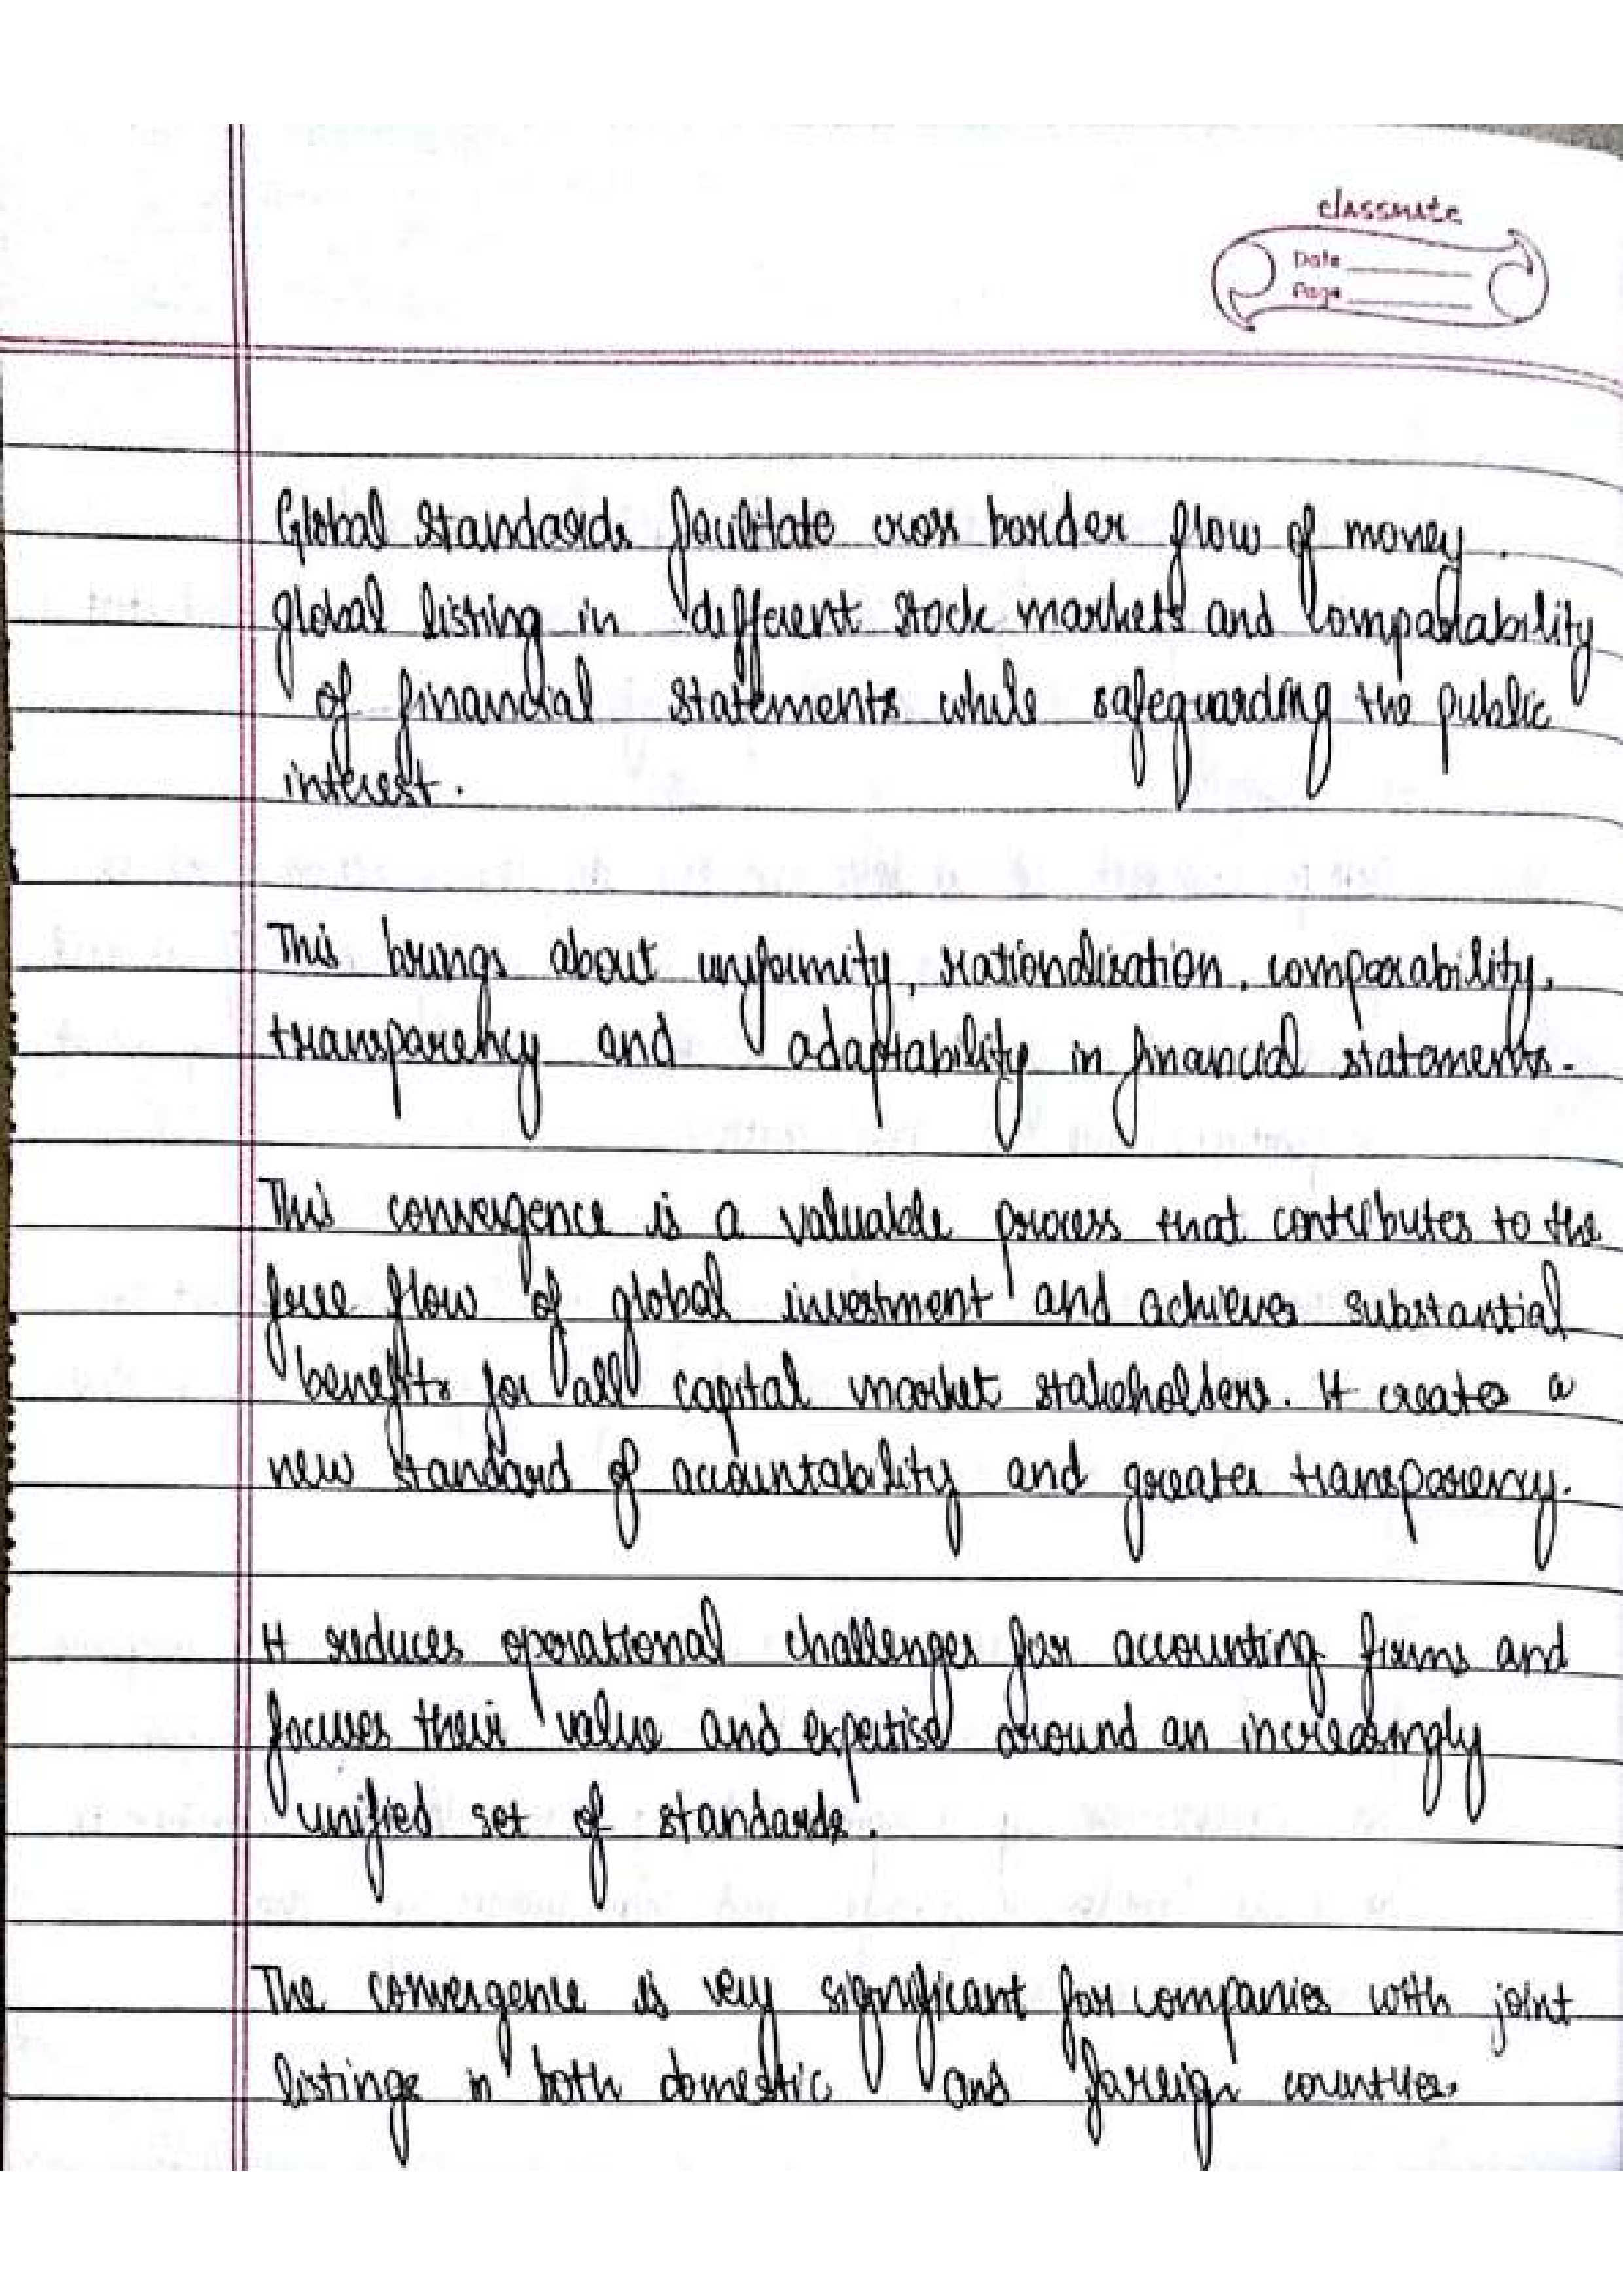 classmate
Date
Page
Global standards facilitate cross border flow of money,
global listing in different stock markets and comparability
of financial statements while safeguarding the public
interest.
This brings about uniformity, rationalisation, comparability,
transparency and adaptability in financial statements.
This convergence is a valuable process that contributes to the
free flow of global investment and achieves substantial
benefits for all capital market stakeholders. It creates a
new standard of accountability and greater transparency.
It reduces operational challenges for accounting firms and
focuses their value and expertise around an increasingly
unified set of standards.
The convergence is very significant for companies with joint
listings in both domestic and foreign countries.